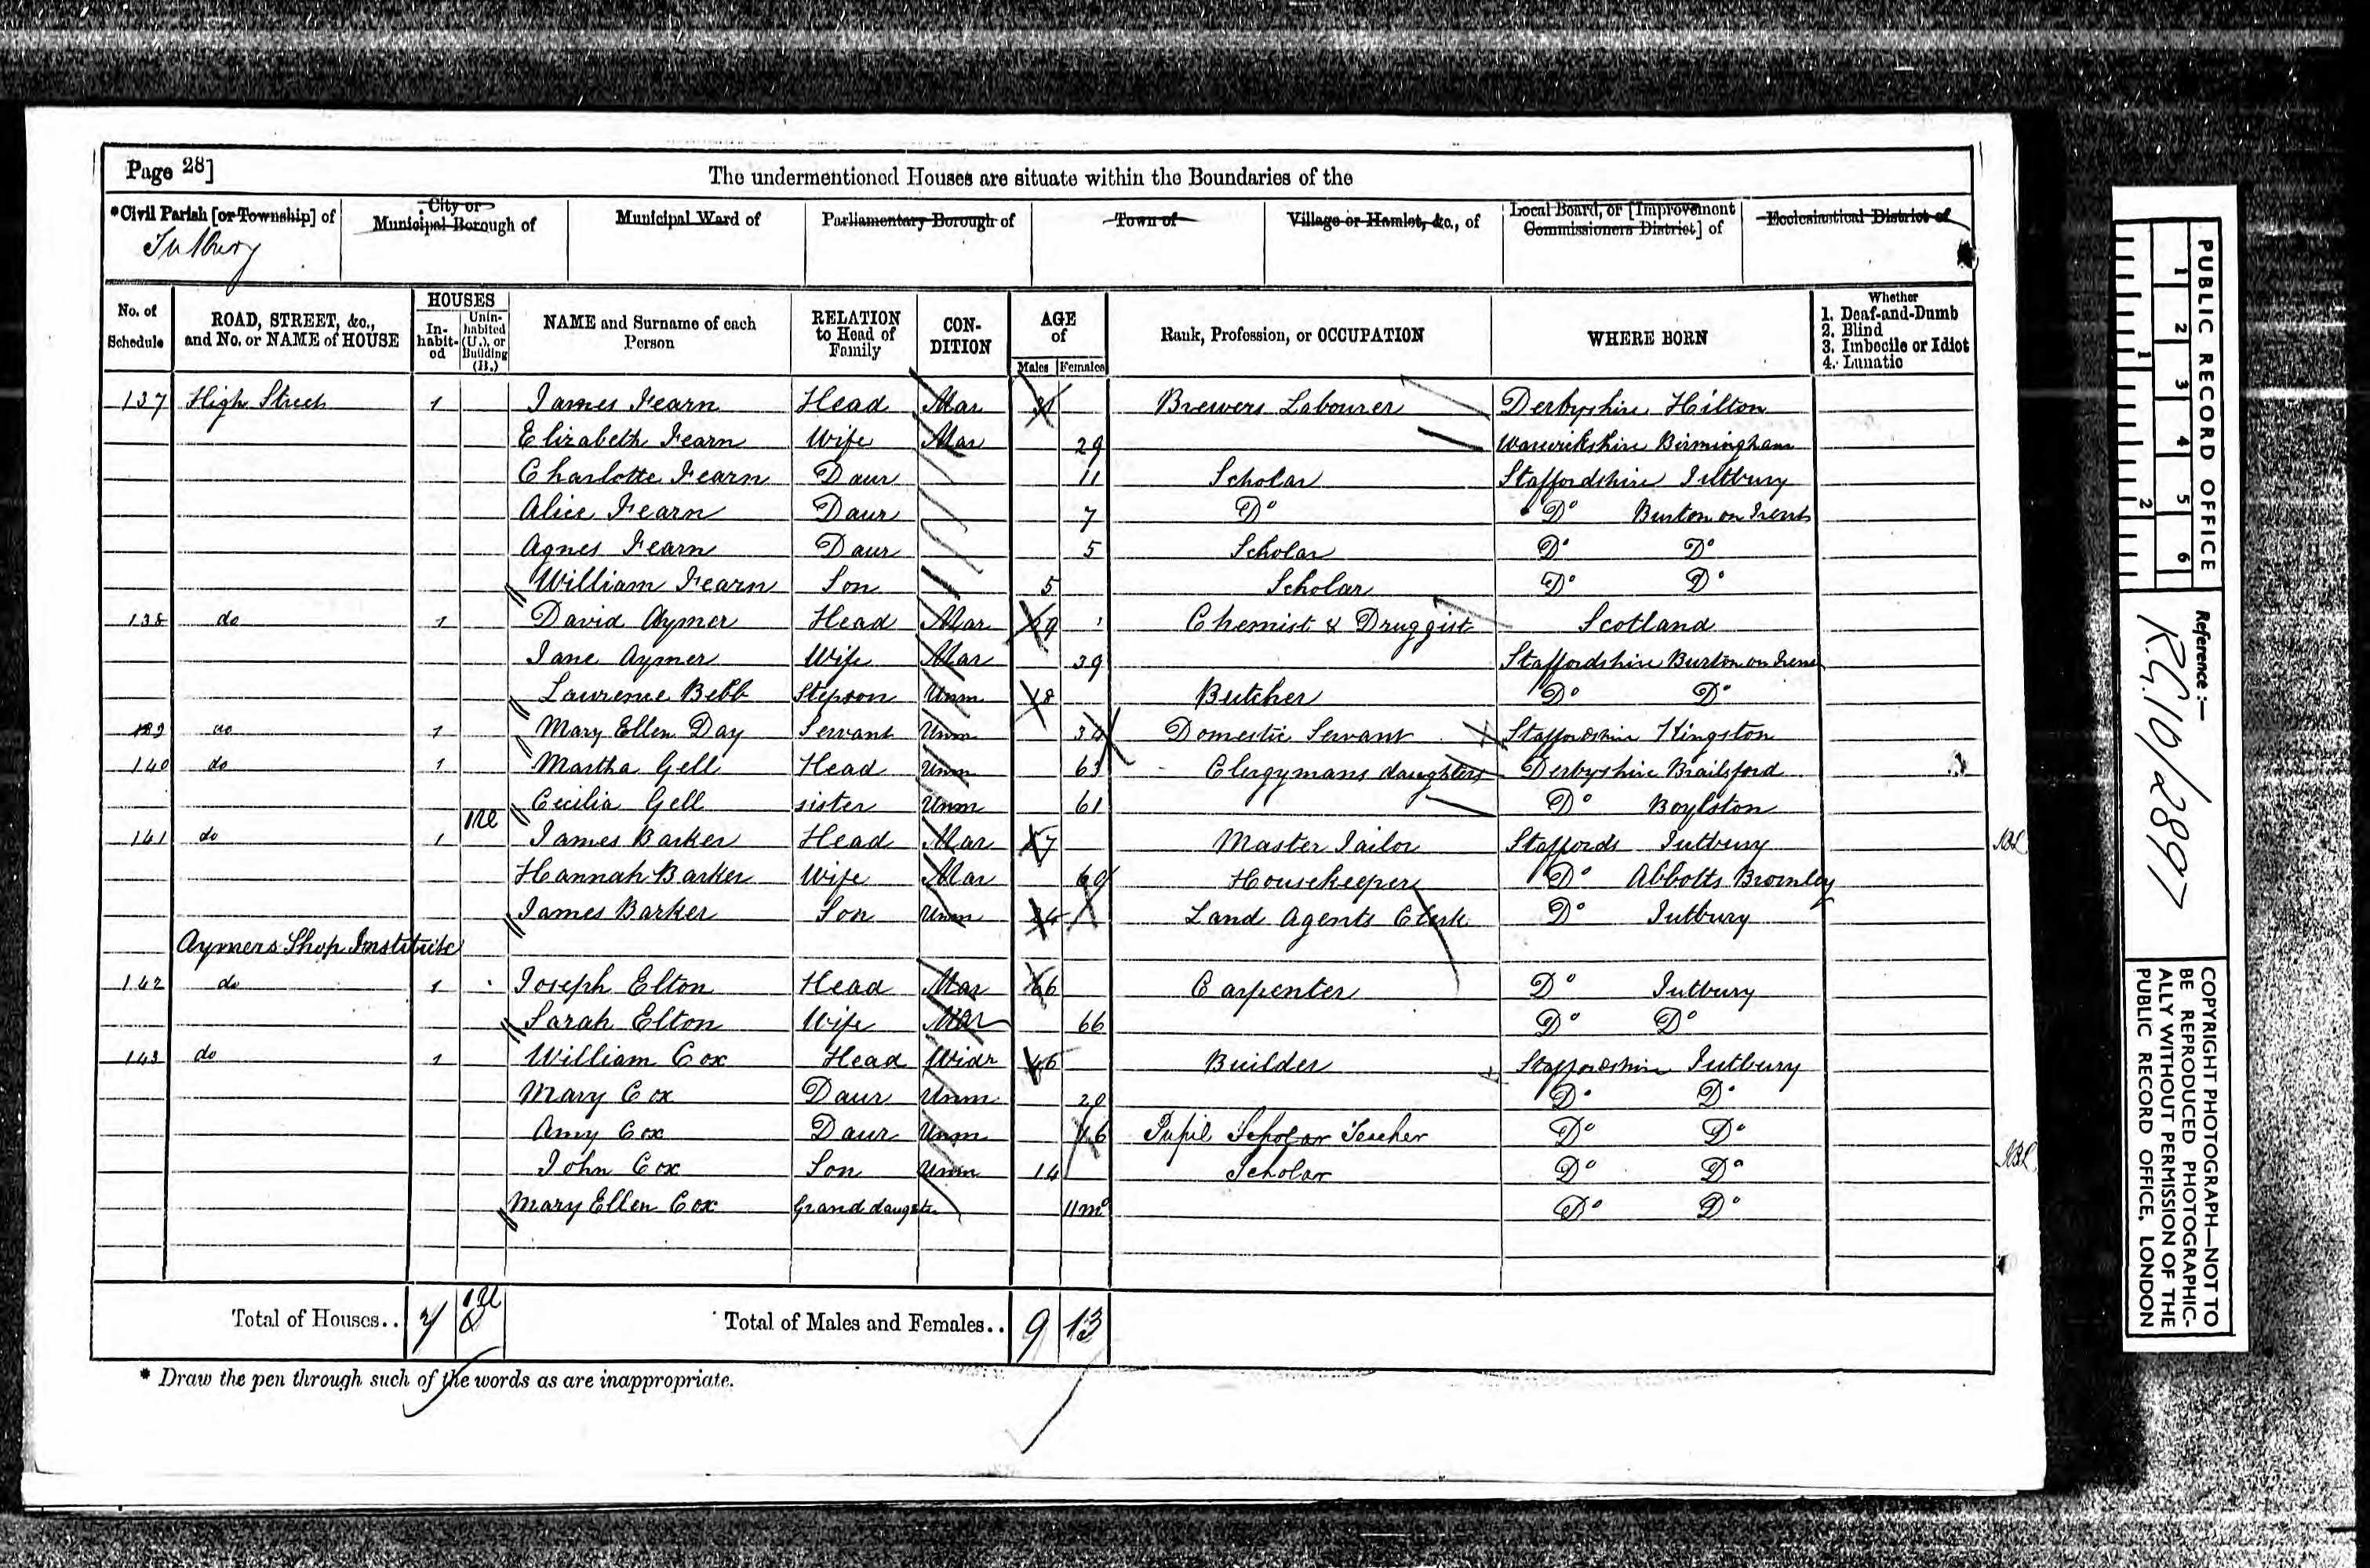 Page 28]
The undermentioned Houses are situate within the Boundaries of the
*Civil Parish [or Township] of
City or Municipal Borough of
Municipal Ward of
Parliamentary Borough of
Town of
Village or Hamlet, &c., of
Local Board, or [Improvement Commissioners District] of
Ecclesiastical District of
Tutbury
No. of Schedule
ROAD, STREET, &c., and No. or NAME of HOUSE
HOUSES
In-habit-ed
Unin-habited (U.), or Building (B.)
NAME and Surname of each Person
RELATION to Head of Family
CON-DITION
AGE of
Males
Females
Rank, Profession, or OCCUPATION
WHERE BORN
Whether
1. Deaf-and-Dumb
2. Blind
3. Imbecile or Idiot
4. Lunatic
137 High Street 1 James Fearn Head Mar Brewers Labourer Derbyshire Hilton
Elizabeth Fearn Wife Mar 29 Warwickshire Birmingham
Charlotte Fearn Daur 11 Scholar Staffordshire Tutbury
Alice Fearn Daur 7 Do Do Burton on Trent
Agnes Fearn Daur 5 Scholar Do Do
William Fearn Son 5 Scholar Do Do
138 do 1 David Aymer Head Mar Chemist & Druggist Scotland
Jane Aymer Wife Mar 39 Staffordshire Burton on Trent
Laurence Bebb Stepson Unm 18 Butcher Do Do
139 do 1 Mary Ellen Day Servant Unm 34 Domestic Servant Staffordshire Kingston
140 do 1 Martha Gell Head Unm 63 Clergymans daughters Derbyshire Brailsford
Cecilia Gell sister Unm 61 Do Boylston
1U
141 do 1 James Barker Head Mar Master Tailor Staffords Tutbury
Hannah Barker Wife Mar 60 Housekeeper Do Abbotts Bromley
James Barker Son Unm 24 Land Agents Clerk Do Tutbury
Aymers Shop Institute
142 do 1 Joseph Elton Head Mar 66 Carpenter Do Tutbury
Sarah Elton Wife Mar 66 Do Do
143 do 1 William Cox Head Widr 46 Builder Staffordshire Tutbury
Mary Cox Daur Unm 20 Do Do
Amy Cox Daur Unm 16 Pupil Scholar Teacher Do Do
John Cox Son Unm 14 Scholar Do Do
Mary Ellen Cox Grand daughter 11mo Do Do
Total of Houses.. 7 1U
Total of Males and Females.. 9 13
* Draw the pen through such of the words as are inappropriate.
PUBLIC RECORD OFFICE
1 2 3 4 5 6
1 2
Reference:—
R.G. 10/2897
COPYRIGHT PHOTOGRAPH—NOT TO
BE REPRODUCED PHOTOGRAPHIC-
ALLY WITHOUT PERMISSION OF THE
PUBLIC RECORD OFFICE, LONDON